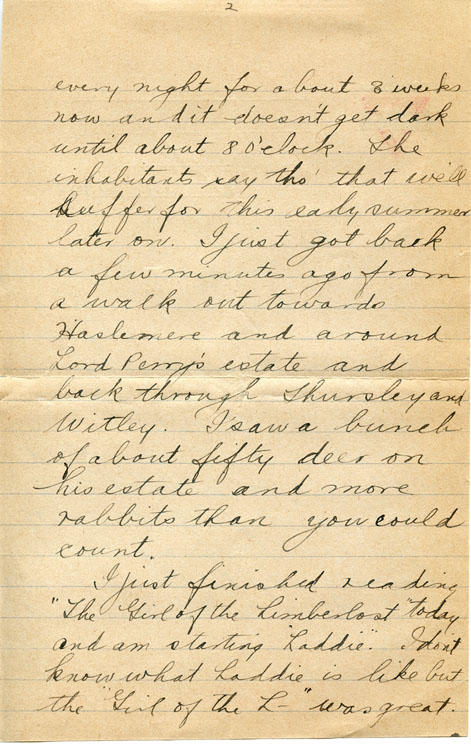 2
every night for about 3 weeks
now and it doesn't get dark
until about 8 O'clock. The
inhabitants say tho' that we'll
suffer for this early summer
later on. I just got back
a few minutes ago from
a walk out towards
Haslemere and around
Lord Perry's estate and
back through Thursley and
Witley. I saw a bunch
of about fifty deer on
his estate and more
rabbits than you could
count.
I just finished reading
"The Girl of the Limberlost" today
and am starting "Laddie". I don't
know what Laddie is like but
the "Girl of the L-" was great.